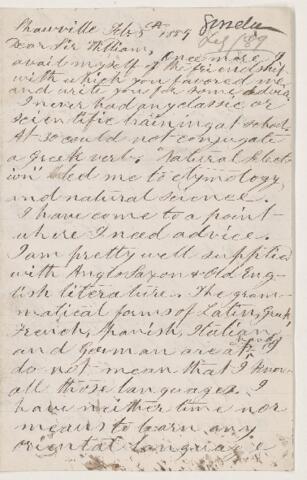 Feb 5th 1889
Dear Sir William,
Once more I
avail myself of the friendship
with which you favored me
and write you for some advice.
I never had any classic or
scientific training at school.
At 30 could not conjugate
a Greek verb. "Natural Selection"
led me to etymology
and natural science.
I have come to a point
where I need advice.
I am pretty well supplied
with Anglo Saxon & Old English
literature. The grammatical
forms of Latin, Greek
French, Spanish, Italian
and German are at
do not mean that I know
all those languages. I
have neither time nor
means to learn any
oriental language